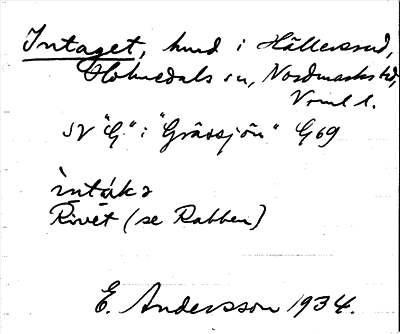 Intaget, hmd i Hällersrud,
Holmedals sn, Nordmarks hd,
Vrml l.
SV "G" i "Gråssjön" G69
ìntákə
Rivet (se Rabben)
E. Andersson 1934.